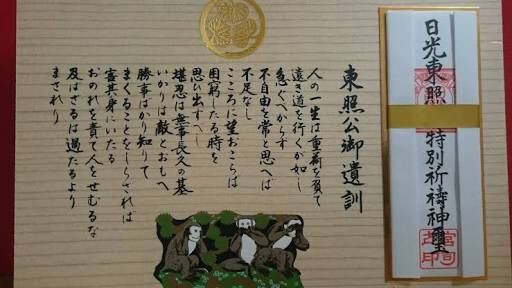 日光東照特別祈禱神璽
東照公御遺訓
人の一生は重荷を負て
遠き道を行くか如し
急くへからす
不自由を常と思へは
不足なし
こころに望おこらは
困窮したる時を
思ひ出すへし
堪忍は無事長久の基
いかりは敵とおもへ
勝事はかり知りて
まくることをしらされは
害其身にいたる
おのれを責て人をせむるな
及はさるは過たるより
まされり